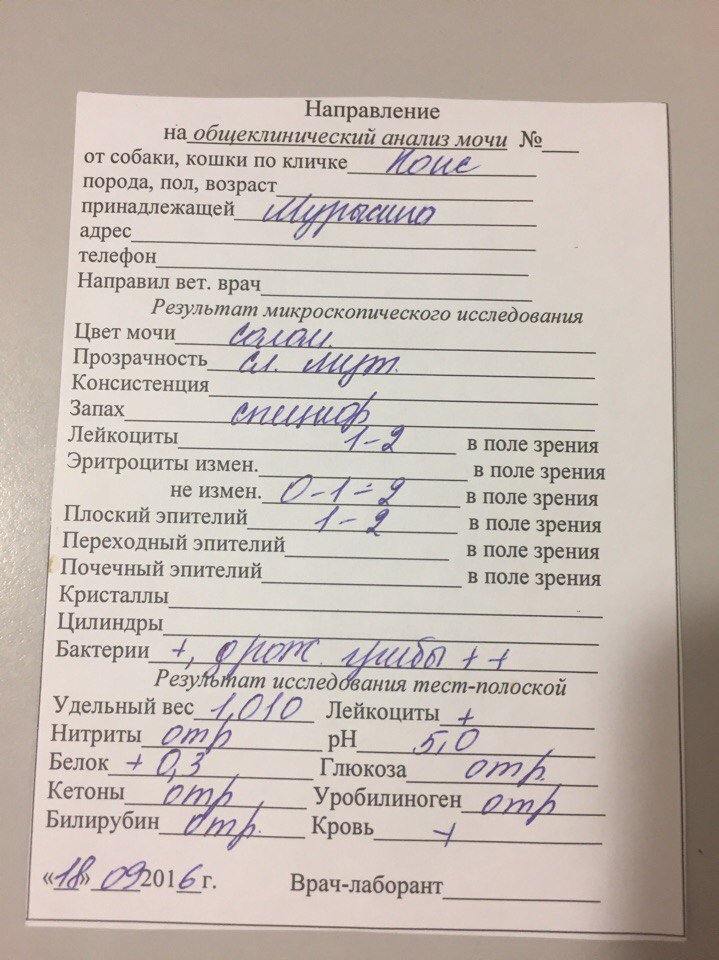 Направление
на общеклинический анализ мочи №
от собаки, кошки по кличке
порода, пол, возраст
принадлежащей
адрес
телефон
Направил вет. врач
Результат микроскопического исследования
Цвет мочи солом.
Прозрачность сл. мут.
Консистенция
Запах специф
Лейкоциты 1-2 в поле зрения
Эритроциты измен. в поле зрения
не измен. 0-1-2 в поле зрения
Плоский эпителий 1-2 в поле зрения
Переходный эпителий в поле зрения
Почечный эпителий в поле зрения
Кристаллы
Цилиндры
Бактерии +, дрож. грибы ++
Результат исследования тест-полоской
Удельный вес 1,010 Лейкоциты +
Нитриты отр pH 5,0
Белок + 0,3 Глюкоза отр
Кетоны отр Уробилиноген отр
Билирубин отр. Кровь +
«18» 09 2016 г. Врач-лаборант